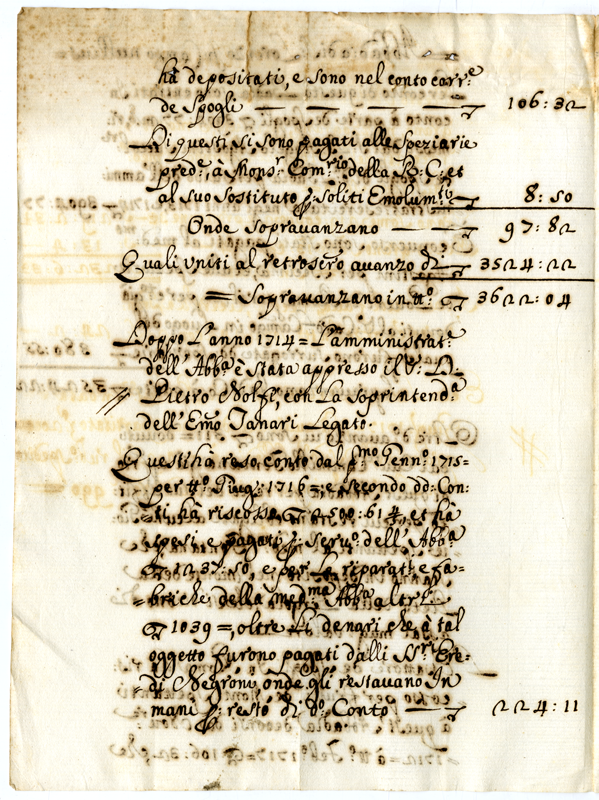 hà depositati, e sono nel conto corr.e
de Spogli — — — — 106:32
Di questi si sono pagati alle Speziarie
pred.e, à Mons.r Com.rio della R: C: et
al suo Sostituto p: soliti Emolum.ti 8:50
Onde Sopravanzano — — 97:82
Quali uniti al retroscr.o avanzo di 3524:22
= Sopravanzano in tt.o 3622:04
Doppo L'anno 1714 = L'amministrat.e
dell'Abb.a è stata appresso il D.
Pietro Nolfi, con La soprintend.a
dell'Emo Ianari Legato.
Questi hà reso conto dal p.mo Genn.o 1715=
per tt.o Giug.o 1716 = e secondo dd: Con=
=ti hà riscosso 2500:61 4, et hà
spesi, e pagati p: serv.o dell'Abb.a
1237:50, e per La riparat.e e fa=
=briche della med.ma Abb.a altri
1039 =, oltre Li denari che à tal
oggetto furono pagati dalli SS.ri Ere=
=di Negroni, onde gli restavano In
mani p: resto di d.o Conto — 224:11